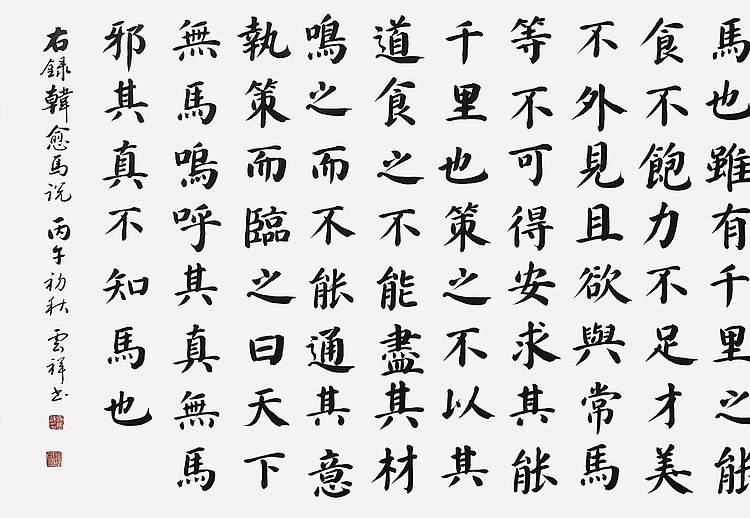 馬也雖有千里之能
食不飽力不足才美
不外見且欲與常馬
等不可得安求其能
千里也策之不以其
道食之不能盡其材
鳴之而不能通其意
執策而臨之曰天下
無馬嗚呼其真無馬
邪其真不知馬也
右録韓愈馬说 丙午初秋 雲祥书